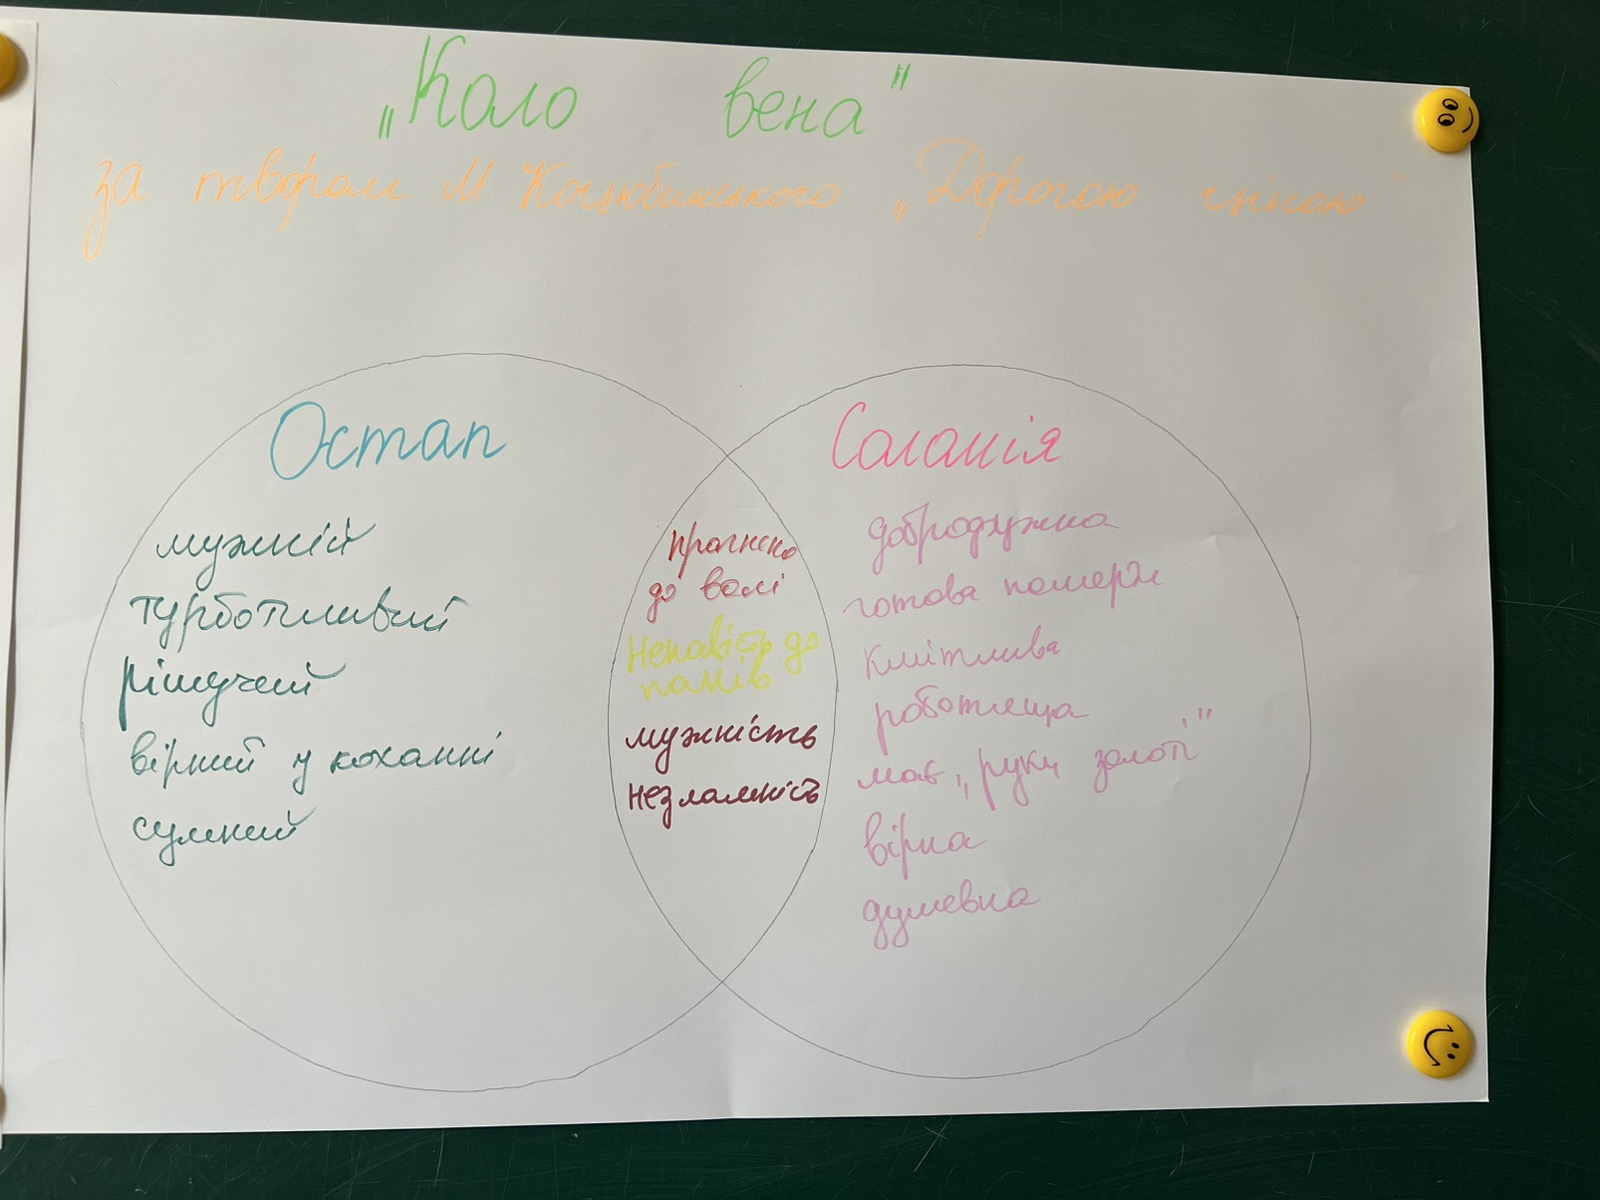 „Коло вена"
за твором М. Коцюбинського „Дорогою ціною"
Остап
мужній
турботливий
рішучий
вірний у коханні
сумний
прагнення
до волі
Ненавість до
панів
мужність
незламність
Соломія
добродушна
готова померти
кмітлива
роботяща
має „руки золоті"
вірна
душевна